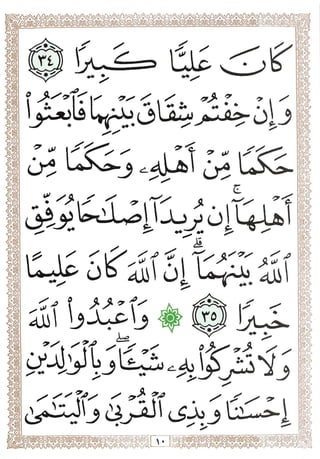 كَانَ عَلِيًّا كَبِيرًا ٣٤
وَإِنْ خِفْتُمْ شِقَاقَ بَيْنِهِمَا فَٱبْعَثُوا۟
حَكَمًا مِّنْ أَهْلِهِۦ وَحَكَمًا مِّنْ
أَهْلِهَآ ۚ إِن يُرِيدَآ إِصْلَـٰحًا يُوَفِّقِ
ٱللَّهُ بَيْنَهُمَآ ۗ إِنَّ ٱللَّهَ كَانَ عَلِيمًا
خَبِيرًا ٣٥ ۞ وَٱعْبُدُوا۟ ٱللَّهَ
وَلَا تُشْرِكُوا۟ بِهِۦ شَيْـًٔا ۖ وَبِٱلْوَٰلِدَيْنِ
إِحْسَـٰنًا وَبِذِى ٱلْقُرْبَىٰ وَٱلْيَتَـٰمَىٰ
١٠